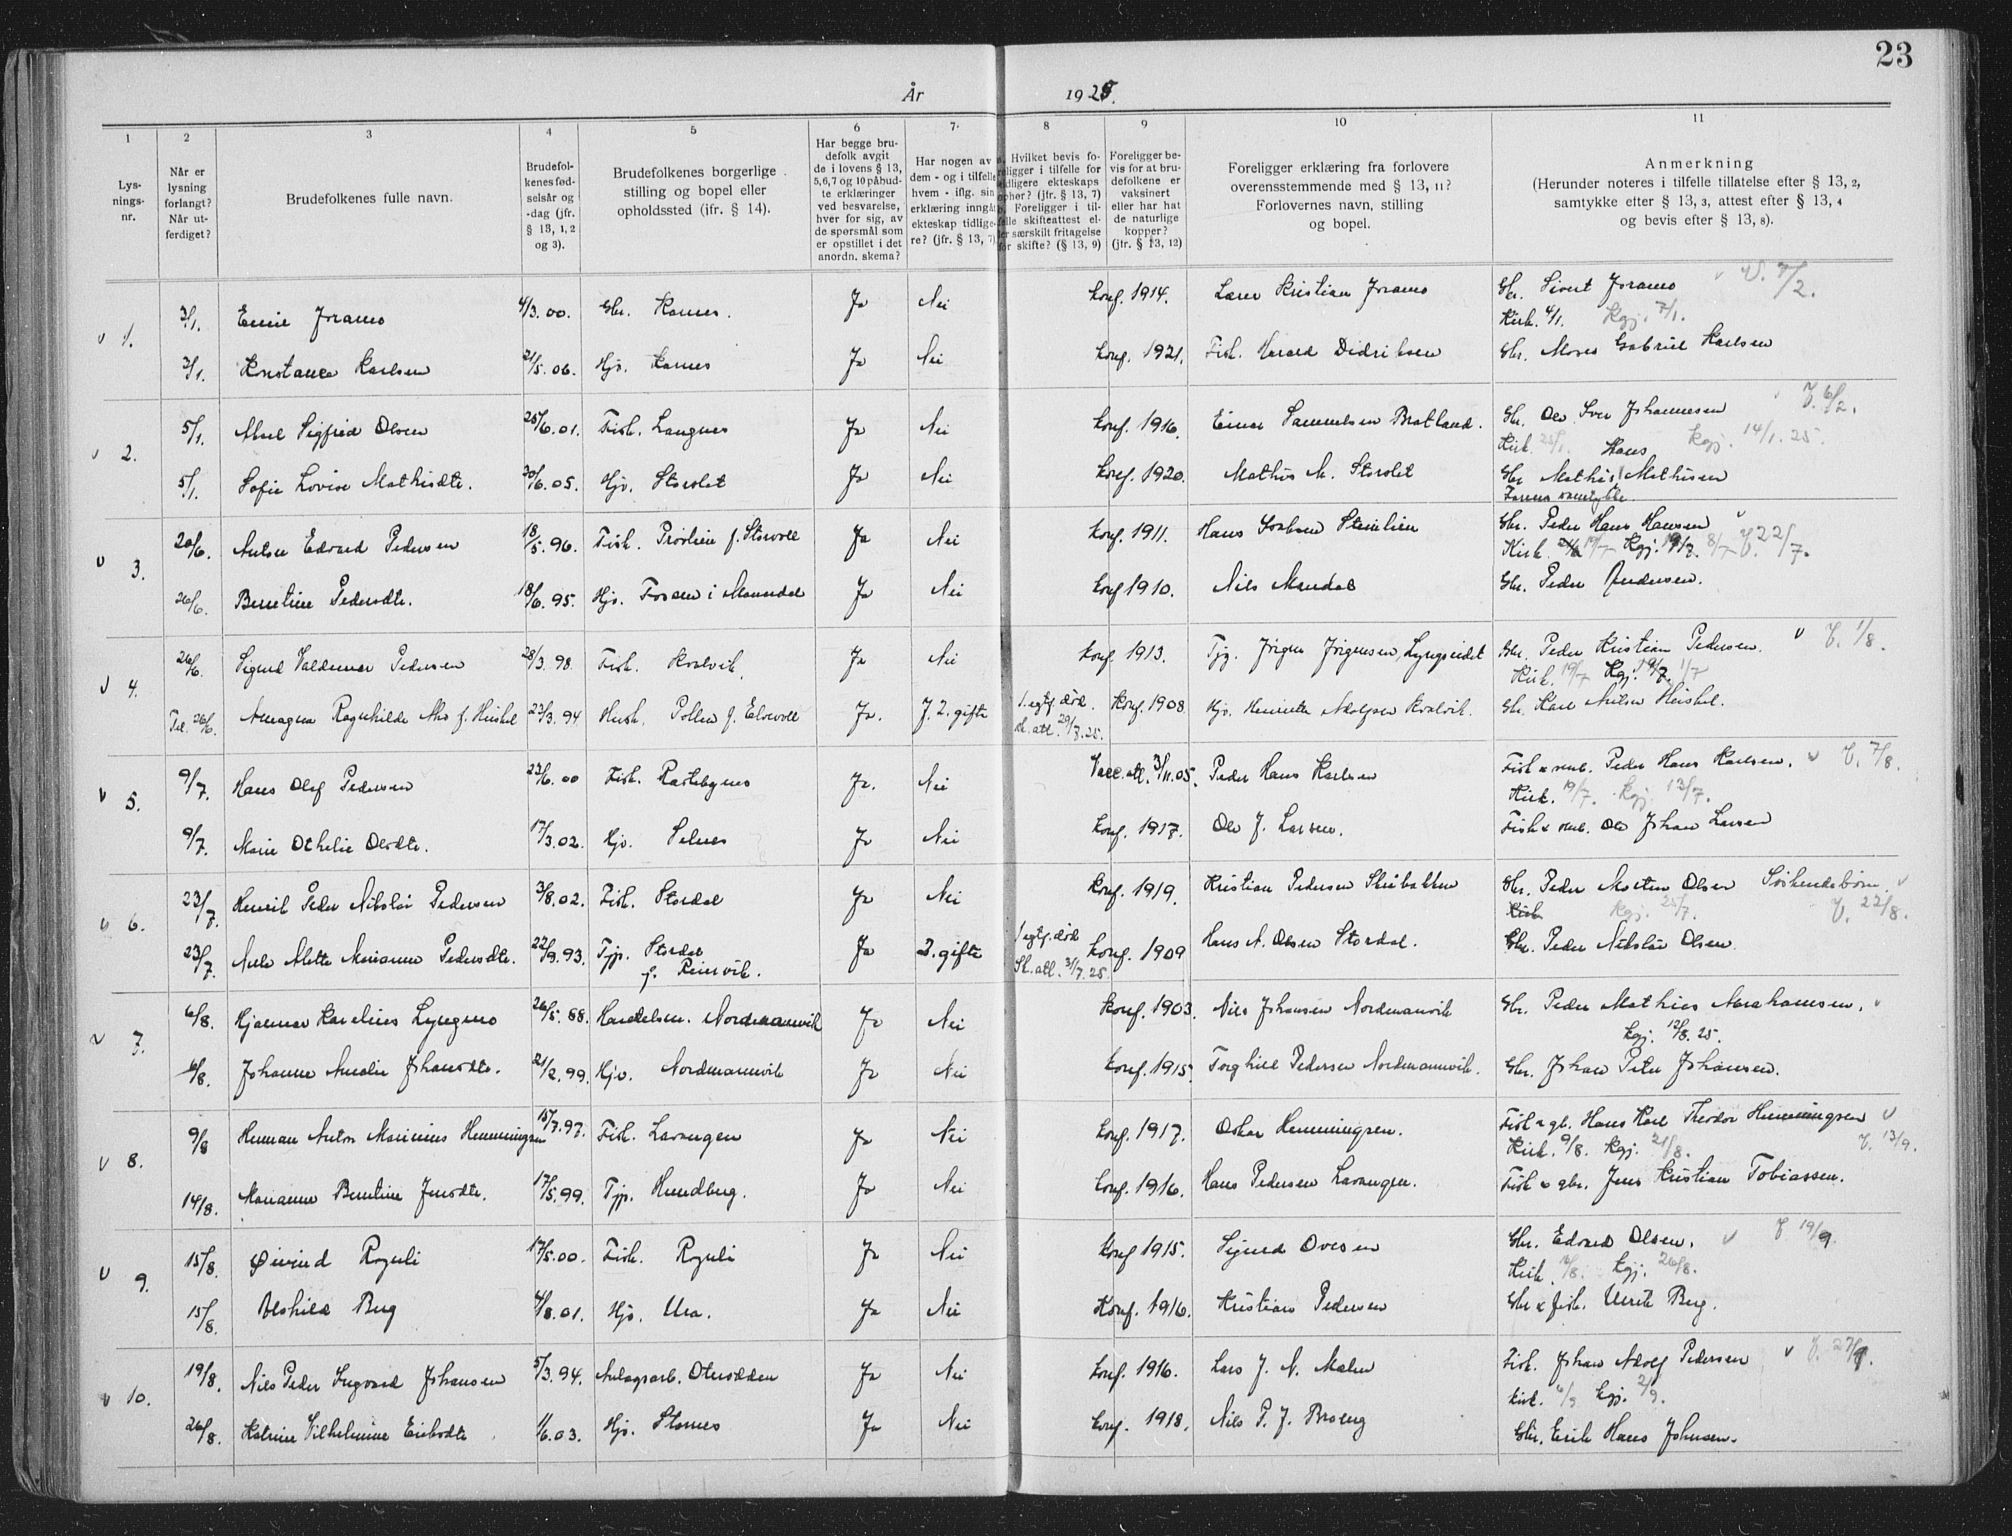 23
År 1925.
1 2 3 4 5 6 7. 8 9 10 11
Lys-
nings-
nr.
Når er
lysning
forlangt?
Når ut-
ferdiget?
Brudefolkenes fulle navn.
Brudefol-
kenes fød-
selsår og
-dag (jfr.
§ 13, 1, 2
og 3).
Brudefolkenes borgerlige
stilling og bopel eller
opholdssted (jfr. § 14).
Har begge bru-
defolk avgit
de i lovens § 13,
5,6,7 og 10 påbud-
te erklæringer
ved besvarelse,
hver for sig, av
de spørsmål som
er opstillet i det
anordn. skema?
Har nogen av
dem - og i tilfelle
hvem - iflg. sin
erklæring inngåt
ekteskap tidlige-
re? (jfr. § 13, 7)
Hvilket bevis fo-
religger i tilfelle for
tidligere ekteskaps
ophør? (jfr. § 13, 7)
Foreligger i til-
felle skifteattest el-
ler særskilt fritagelse
for skifte? (§ 13, 9)
Foreligger be-
vis for at bru-
defolkene er
vaksinert
eller har hat
de naturlige
kopper?
(jfr. § 13, 12)
Foreligger erklæring fra forlovere
overensstemmende med § 13, 11?
Forlovernes navn, stilling
og bopel.
Anmerkning
(Herunder noteres i tilfelle tillatelse efter § 13, 2,
samtykke efter § 13, 3, attest efter § 13, 4
og bevis efter § 13, 8).
1. 3/1. Joramo 4/3.00. Gbr. Ja Nei Konf. 1914. Lærer Kristian Joramo Gbr. Sivert Joramo 7/2.
Kirk. 4/1. Kgj. 7/1.
3/1. Konstance Karlsen 21/5.06. Hjv. Ja Nei Konf. 1921. Fisk. Harald Didriksen Gbr. Gabriel Karlsen
2. 5/1. Sigfred Olsen 25/6.01. Fisk. Langnes Ja Nei Konf. 1916. Einar Samuelsen Bratland. Gbr. Johannesen V. 6/2.
Kirk. Hans Kgj. 14/1.25.
5/1. Sofie Lovise Mathisdtr. 20/6.05. Hjv. Storslet Ja Nei Konf. 1920. Mathis M. Storslet Gbr. Mathis Mathisen
Farens samtykke
3. 20/6. Edvard Pedersen 18/5.96. Fisk. Ja Nei Konf. 1911. Hans Gbr. Peder Hans Hansen
Kirk. Kgj. V. 22/7.
20/6. Berntine Pedersdtr. 18/6.95. Hjv. i Manndal Ja Nei Konf 1910. Nils Mandal Gbr. Peder Andersen.
4. 26/6. Sigurd Valdemar Pedersen 28/3.98. Fisk. Kvalvik Ja Nei Konf. 1913. Jørgen Jørgensen, Lyngseidet Gbr. Peder Kristian Pedersen. V. 1/8.
Kirk. 19/7 Kgj. 1/7
26/6. Ragnhilde 23/3.94 Hush. Ja. J. 2. gifte 1. egtf. død. Konf. 1908 Hjv. Henriette Adolfsen Kvalvik. Gbr. Karl Nilsen
Sk. att. 29/7.25.
5. 9/7. Hans Olaf Pedersen 23/6.00 Fisk. Rastebynes Ja. Nei Vacc. att. 3/11.05. Peder Hans Karlsen Fisk & Peder Hans Karlsen. V. 7/8.
Kirk. 19/7. Kgj. 13/7.
9/7. Marie Othelie Olsdtr. 17/3.02. Hjv. Selnes Ja Nei Konf. 1917. Ole J. Larsen. Fisk & Ole Johan Larsen
6. 23/7. Henrik Peder Nikolai Pedersen 3/8.02. Fisk. Stordal Ja Nei Konf. 1919. Kristian Pedersen Gbr. Peder Morten Olsen Søskendebørn
Kirk Kgj. 25/7. V. 22/8.
23/7. Nele Alette Marianne Pedersdtr. 22/9.93. Stordal Ja 2. gifte 1 egtf. død Konf. 1909 Hans N. Olsen Stordal. Gbr. Peder Nikolai Olsen
Sk. att. 3/7.25
7. 6/8. Hjalmar Karelius Lyngmo 26/5.88. Handelsm. Nordmannvik Ja Nei Konf. 1903. Nils Johansen Nordmannvik Gbr. Peder Mathias Abrahamsen.
Kgj. 12/8.25.
6/8. Johanne Amalie Johansdtr. 21/2.99. Hjv. Nordmannvik Ja Nei Konf. 1915. Torghild Pedersen Nordmannvik. Gbr. Johan Peter Johansen.
8. 9/8 Herman Anton Marinius Hemmingsen 15/7.97. Fisk. Lavangen Ja Nei Konf. 1917. Oskar Hemmingsen. Fisk & gb. Hans Karl Theodor Hemmingsen
Kirk. 9/8. Kgj. 21/8. V. 13/9.
14/8. Marianne Berntine Jensdtr. 17/5.99. Hundberg. Ja Nei Konf. 1916. Hans Pedersen Lavangen. Fisk & gbr. Jens Kristian Tobiassen.
9. 15/8. Øivind Rognli 17/5.00. Fisk. Rognli Ja Nei Konf 1915. Sigurd Ovesen Gbr. Edvard Olsen. V 19/9.
Kirk. Kgj. 26/8.
15/8. Berg 4/8.01. Hjv. Ura. Ja Nei Konf. 1916. Kristian Pedersen Gbr & fisk. Ulrik Berg.
10. 19/8. Nils Peder Ingvard Johansen 5/3.94. Anlegsarb. Oteroddden Ja Nei Konf. 1916. Lars J. N. Malen Fisk. Johan Adolf Pedersen V. 27/9.
Kirk. Kgj. 2/9.
26/8. Katrine Vilhelmine 1/6.03. Hjv. Ja Nei Konf. 1918. Nils P. J. Gbr. Erik Hans Johnsen.